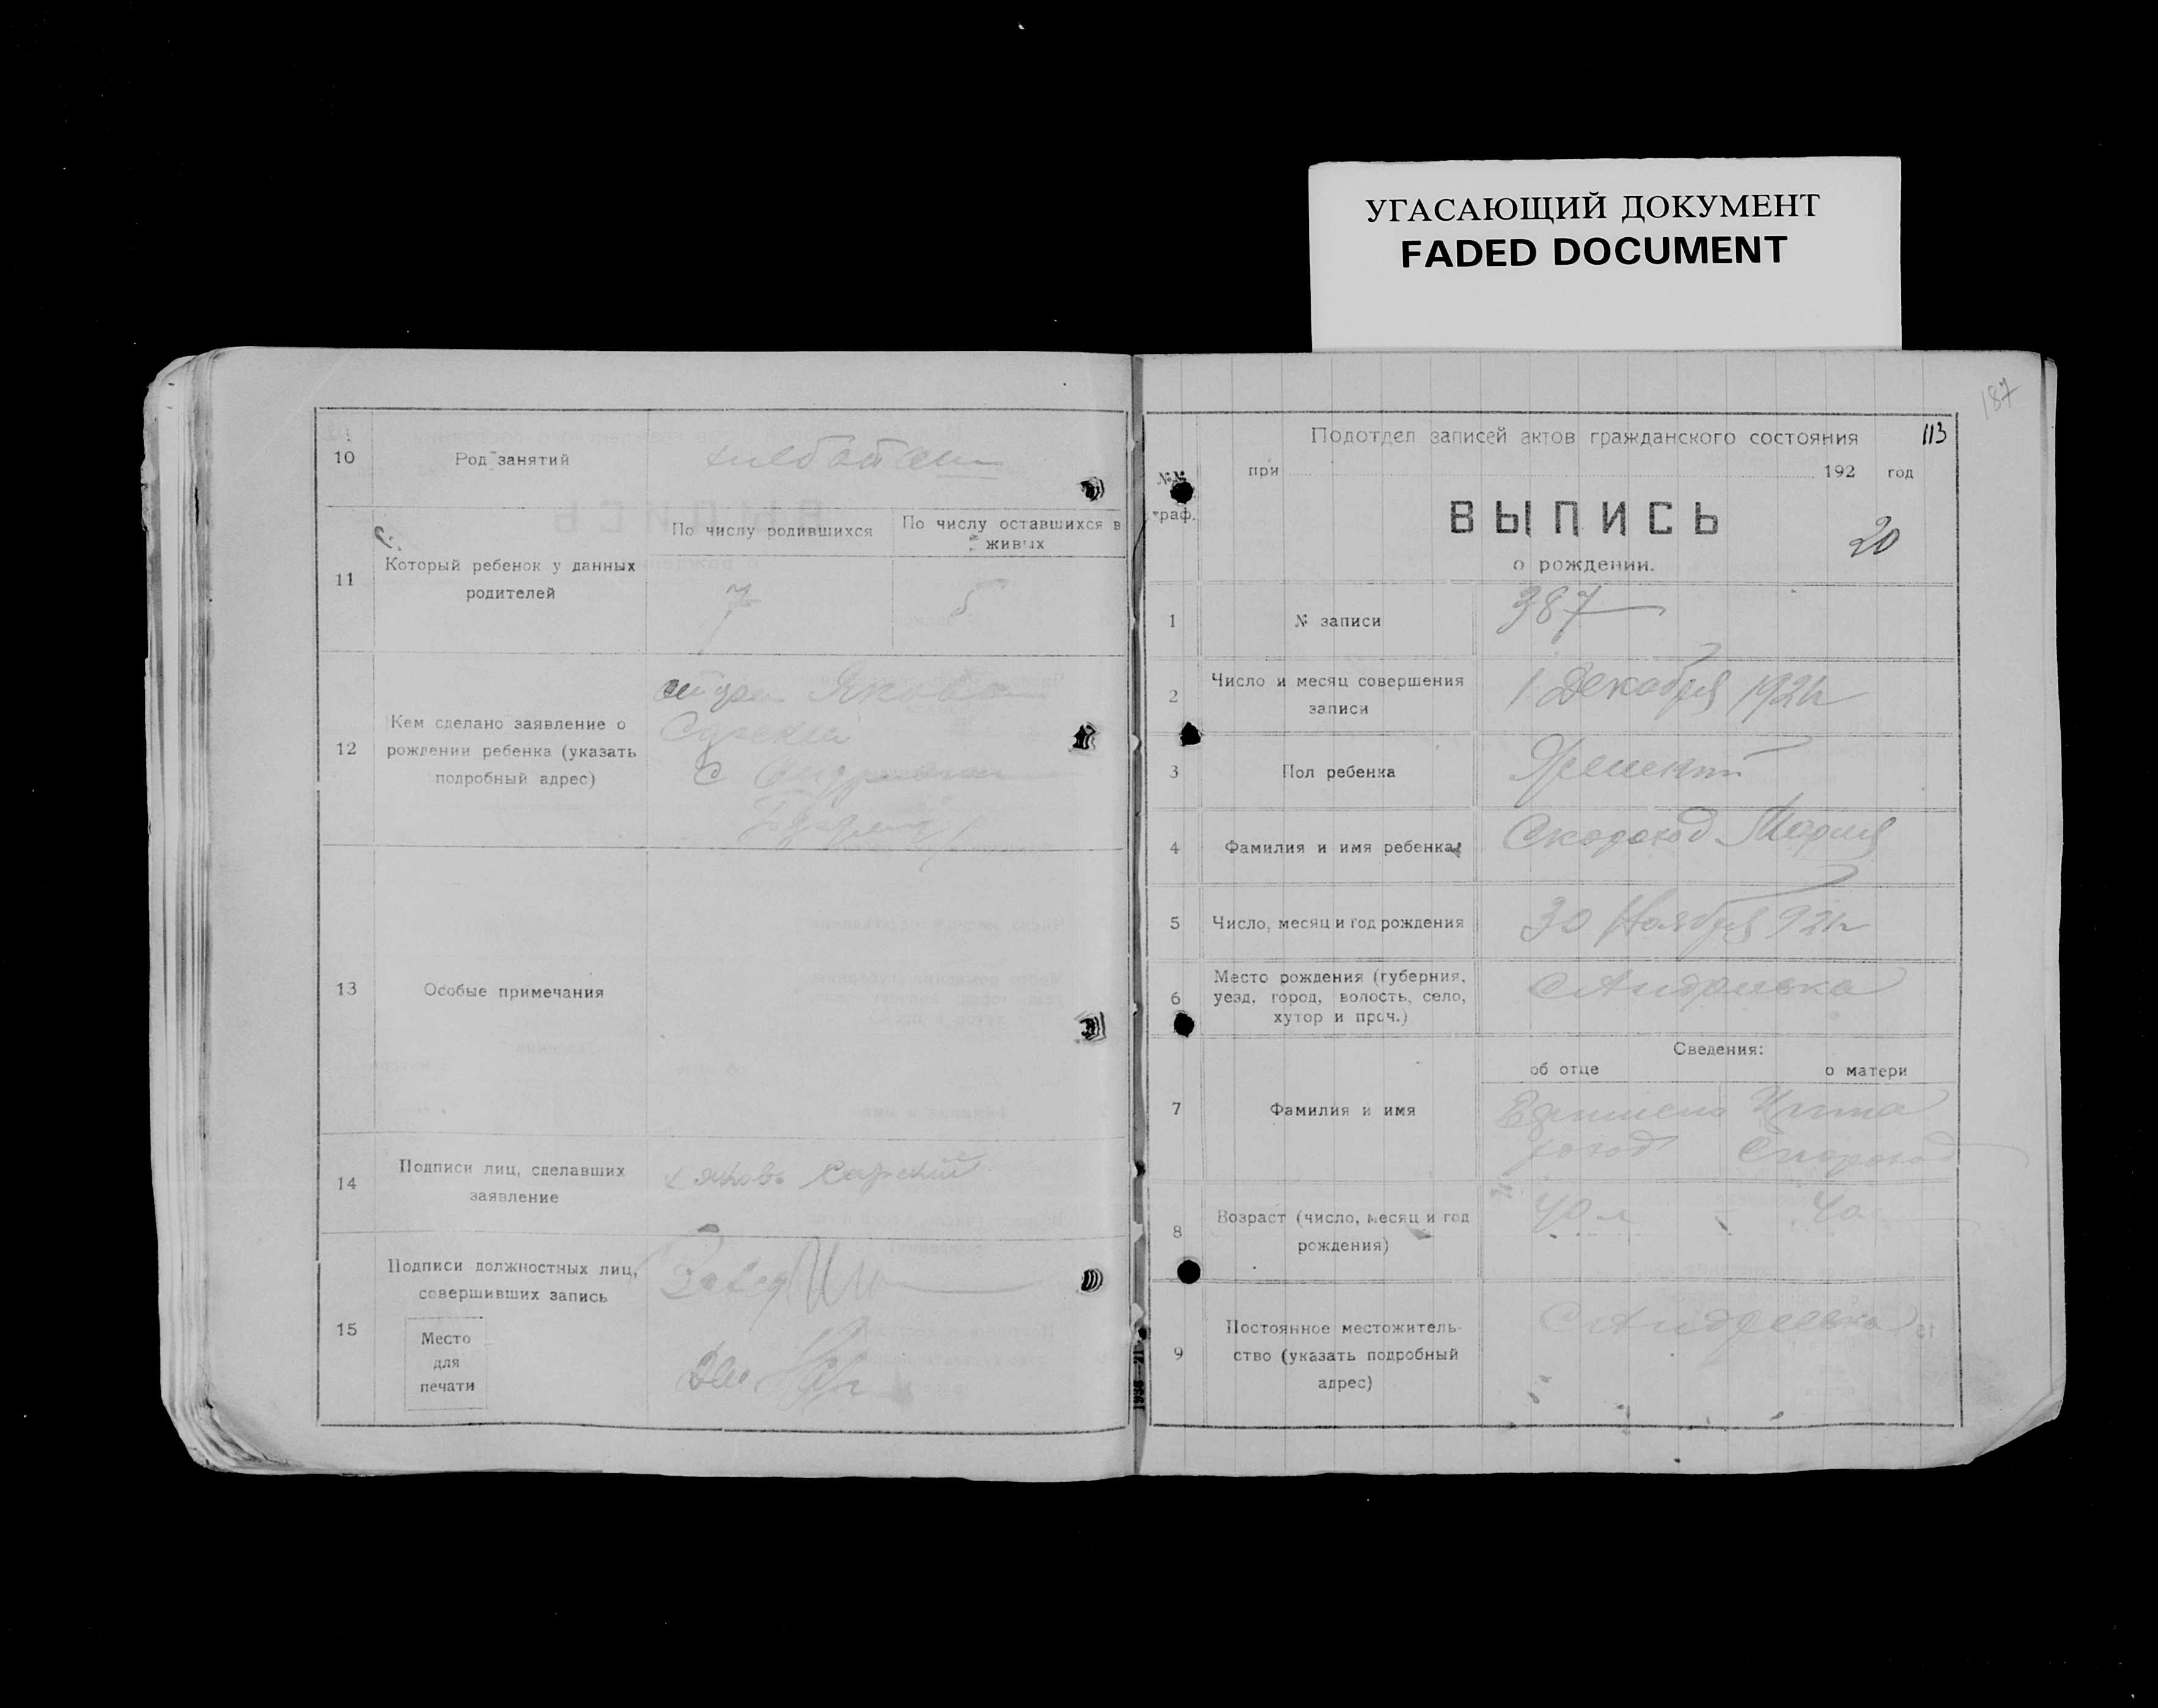 УГАСАЮЩИЙ ДОКУМЕНТ
FADED DOCUMENT
10
Род занятий
11
Который ребенок у данных
родителей
По числу родившихся
По числу оставшихся в
живых
7
5
12
Кем сделано заявление о
рождении ребенка (указать
подробный адрес)
Якова
с
13
Особые примечания
14
Подписи лиц, сделавших
заявление
15
Подписи должностных лиц,
совершивших запись
Место
для
печати
187
113
Подотдел записей актов гражданского состояния
при 192 год
№№
граф.
ВЫПИСЬ
20
о рождении.
1
№ записи
387
2
Число и месяц совершения
записи
1 Декабря 1921г
3
Пол ребенка
Женский
4
Фамилия и имя ребенка
Скороход Мария
5
Число, месяц и год рождения
30 Ноября 921г
6
Место рождения (губерния,
уезд, город, волость, село,
хутор и проч.)
с Андреевка
Сведения:
об отце
о матери
7
Фамилия и имя
Скороход
8
Возраст (число, месяц и год
рождения)
40 л
40
9
Постоянное местожитель-
ство (указать подробный
адрес)
с Андреевка